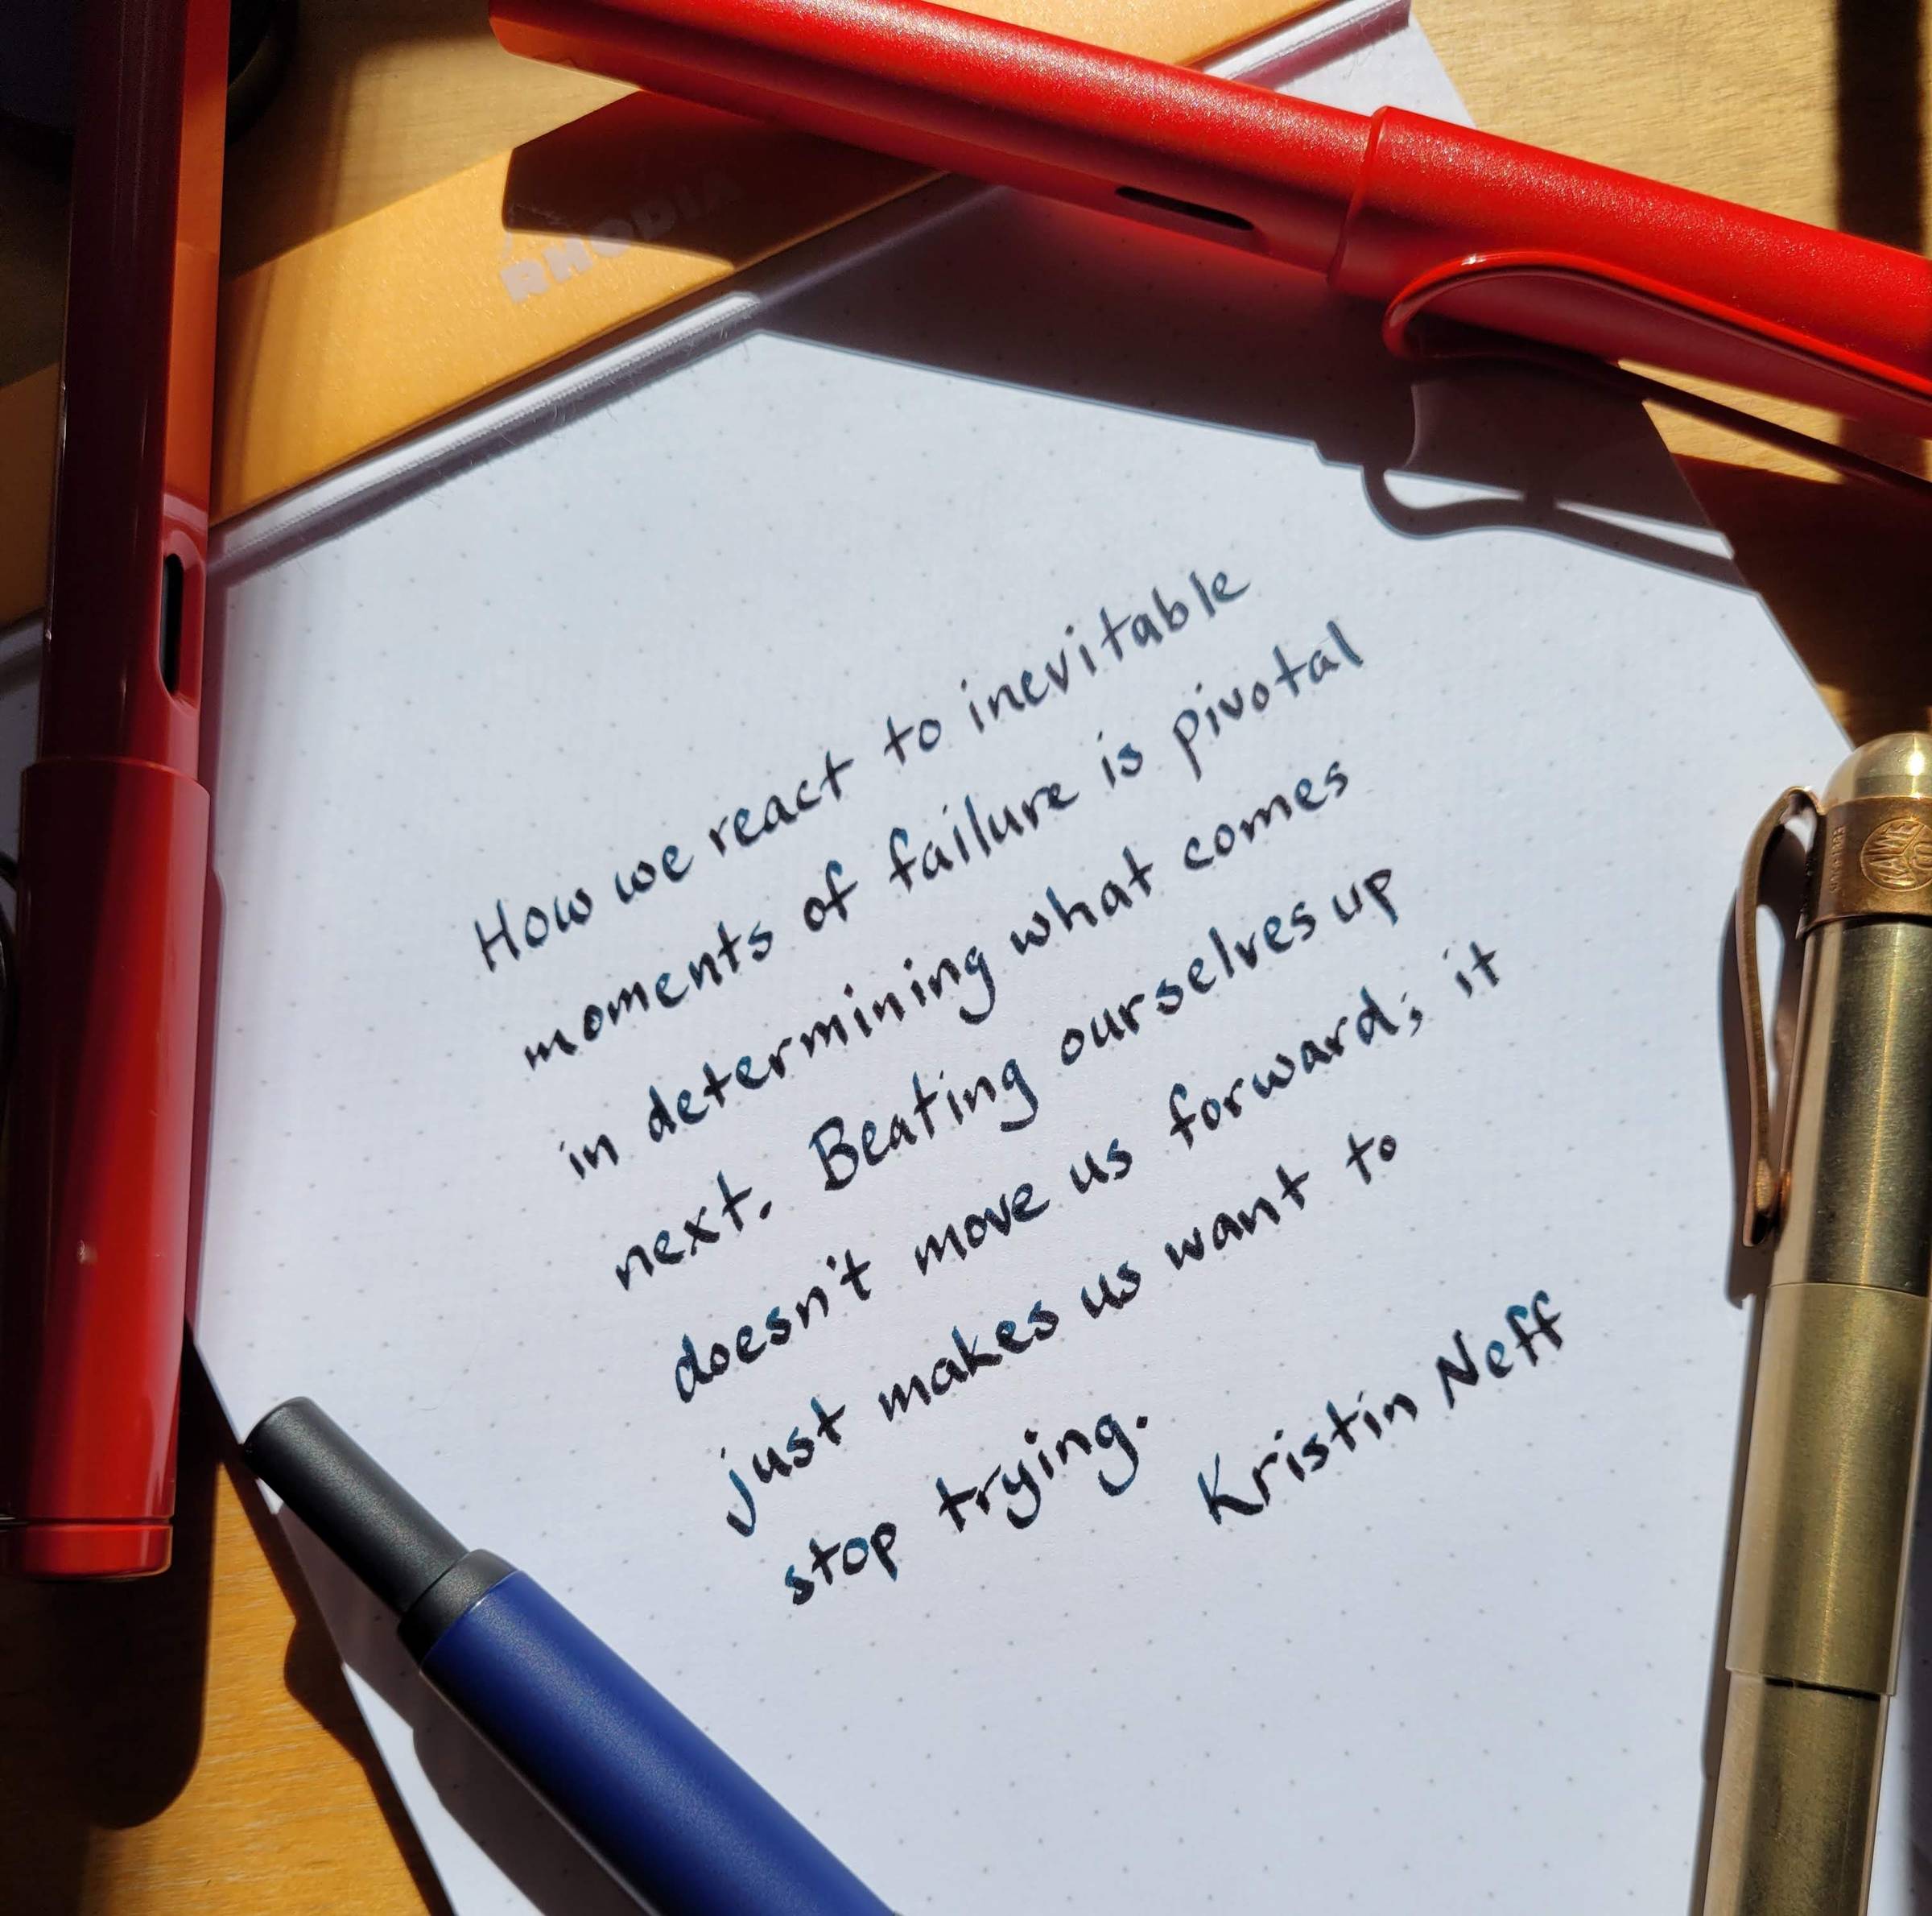 RHODIA
How we react to inevitable
moments of failure is pivotal
in determining what comes
next. Beating ourselves up
doesn't move us forward; it
just makes us want to
stop trying.
Kristin Neff